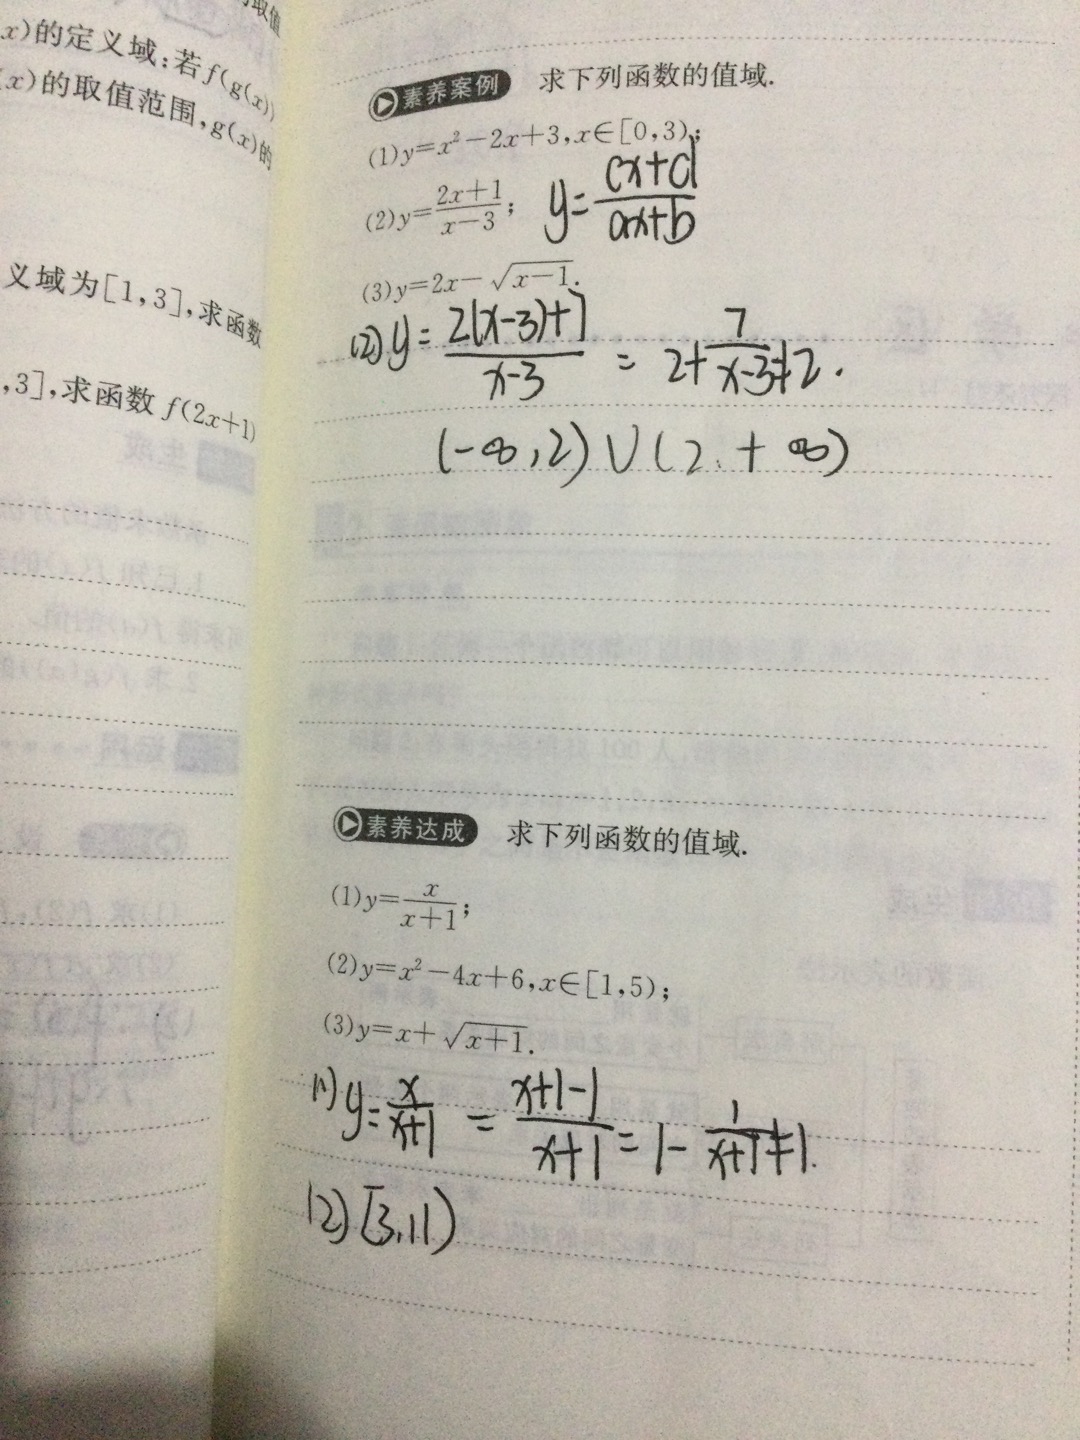 的取值
x)的定义域:若f(g(x))
(x)的取值范围,g(x)的
义域为[1,3],求函数
,3],求函数f(2x+1)
素养案例 求下列函数的值域.
(1)y=x²-2x+3,x∈[0,3);
(2)y=\frac{2x+1}{x-3}; y=\frac{cx+d}{ax+b}
(3)y=2x-\sqrt{x-1}.
(2)y=\frac{2(x-3)+7}{x-3}=2+\frac{7}{x-3}≠2.
(-∞,2)∪(2,+∞)
素养达成 求下列函数的值域.
(1)y=\frac{x}{x+1};
(2)y=x²-4x+6,x∈[1,5);
(3)y=x+\sqrt{x+1}.
(1)y=\frac{x}{x+1}=\frac{x+1-1}{x+1}=1-\frac{1}{x+1}≠1.
(2)[3,11)